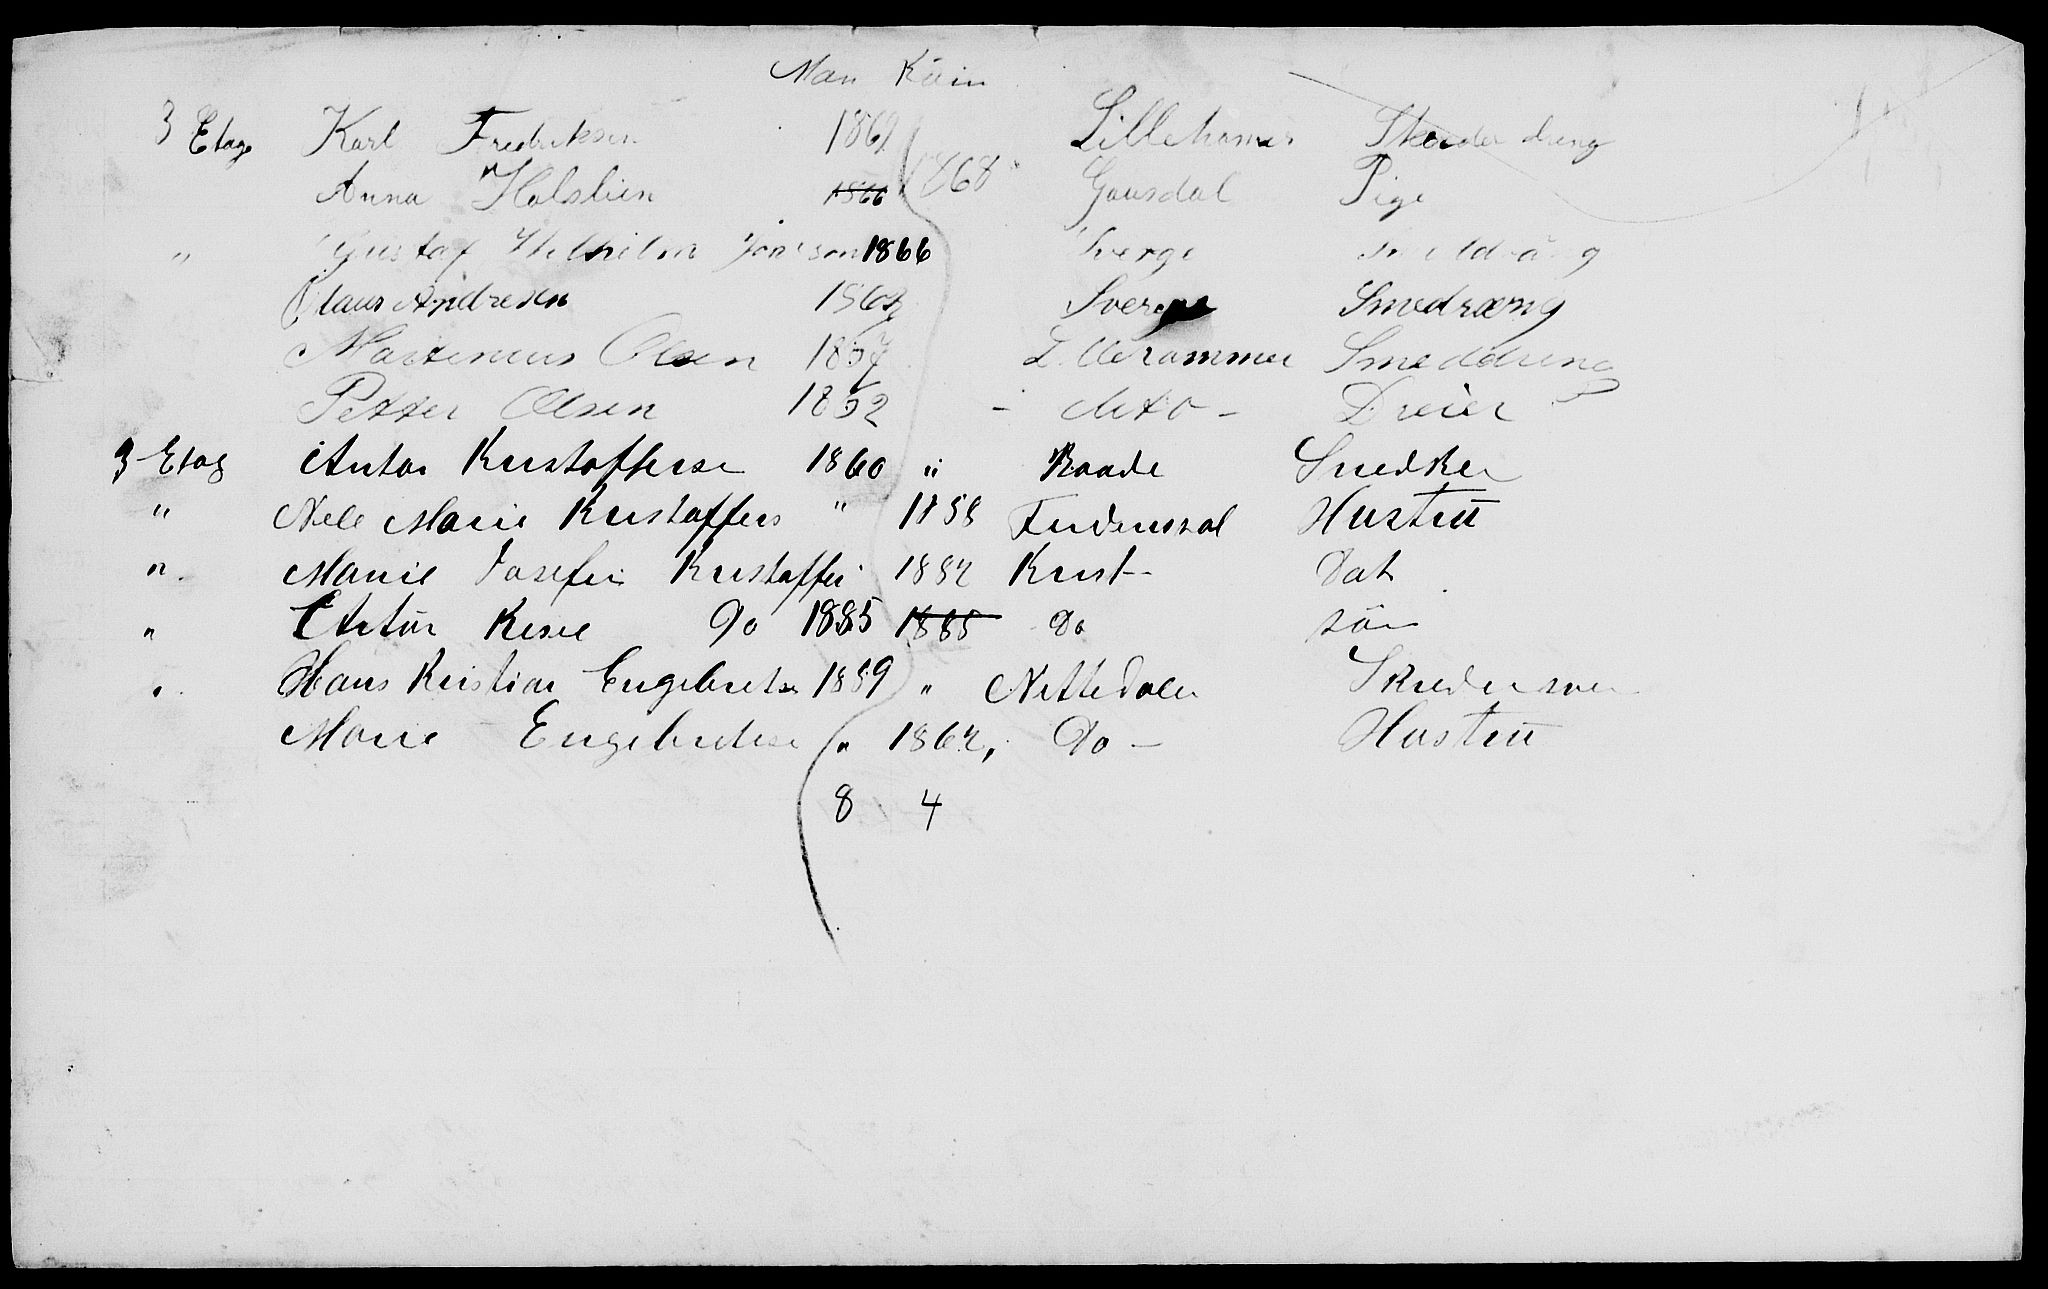 Man Kvin
3 Etage Karl Fredriksen 1869 Lillehamer Skrædderdreng
Anna Holstien 1866 1868 Gausdal Pige
" Gustaf Vilhelm Jonsson 1866 Sverge
Claus Andresen 1869 Sverge Smedræng
Martinius Olsen 1857 Lillehammer Smeddreng
Petter Olsen 1852 - ditto - Dreier
3 Etag Anton Kristoffersen 1860 " Raade Snedker
" Nele Marie Kristoffers " 1858 Hustru
" Marie Josefin Kristoffe 1882 Krist- Dat
" Do 1885 1885 Do sön
" Hans Kristian Engebretsen 1859 " Nittedalen
Marie Engebretsen " 1862, Do - Hustru
8 4